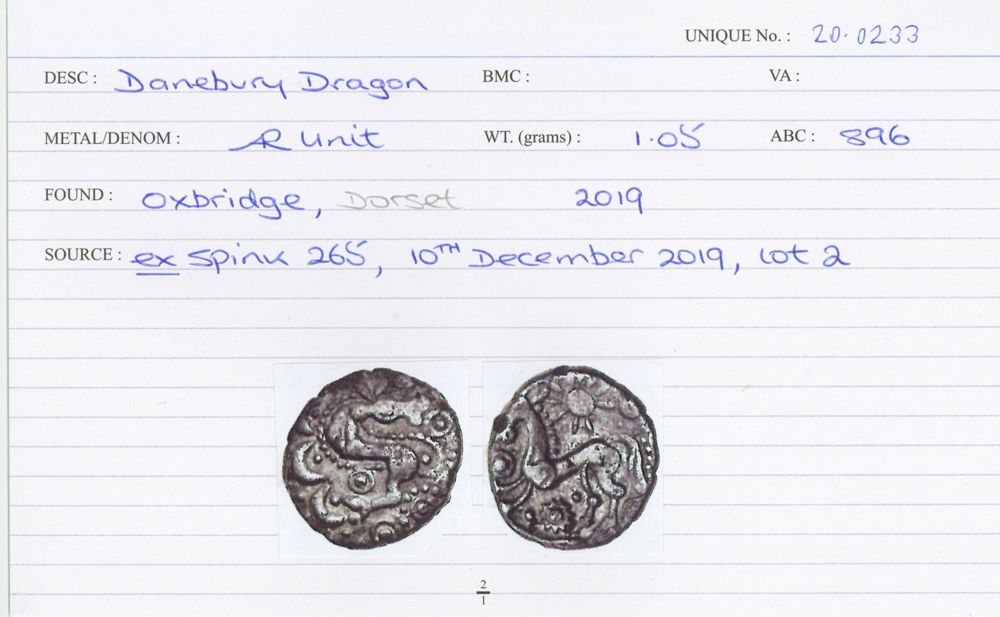 UNIQUE No. : 20.0233
DESC : Danebury Dragon BMC : VA :
METAL/DENOM : AR Unit WT. (grams) : 1.05 ABC : 896
FOUND : Oxbridge, Dorset 2019
SOURCE : ex Spink 265, 10TH December 2019, lot 2
2
1